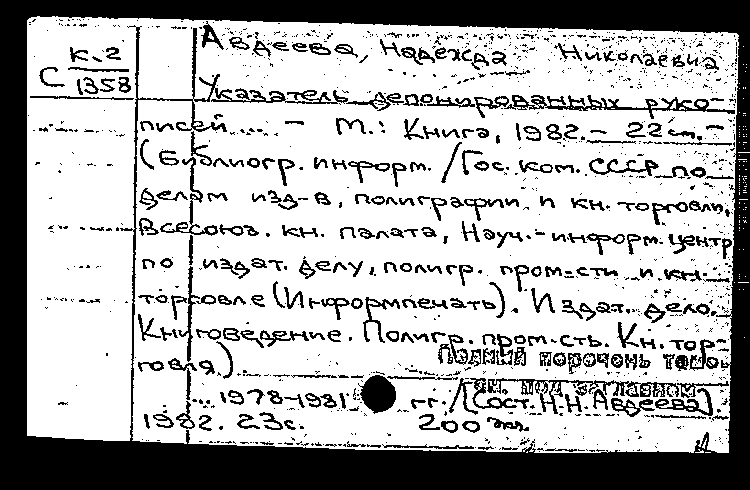 Авдеева, Надежда Николаевна
К.2
С 1358
Указатель депонированных руко-
писей .... - М.: Книга, 1982. - 22 см. -
(Библиогр. информ. / Гос. ком. СССР по
делам изд-в, полиграфии и кн. торговли,
Всесоюз. кн. палата, Науч.-информ. центр
по издат. делу, полигр. пром-сти и кн.
торговле (Информпечать). Издат. дело.
Книговедение. Полигр. пром-сть. Кн. тор-
говля)
Полный перечень томов
см. под заглавием
... 1978-1981 гг. / (Сост. Н.Н. Авдеева).
1982. 23 с. 200 экз.